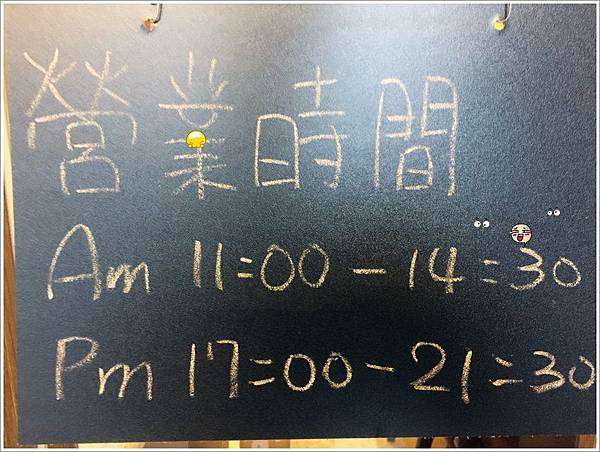 營業時間
Am 11:00-14:30
Pm 17:00-21:30